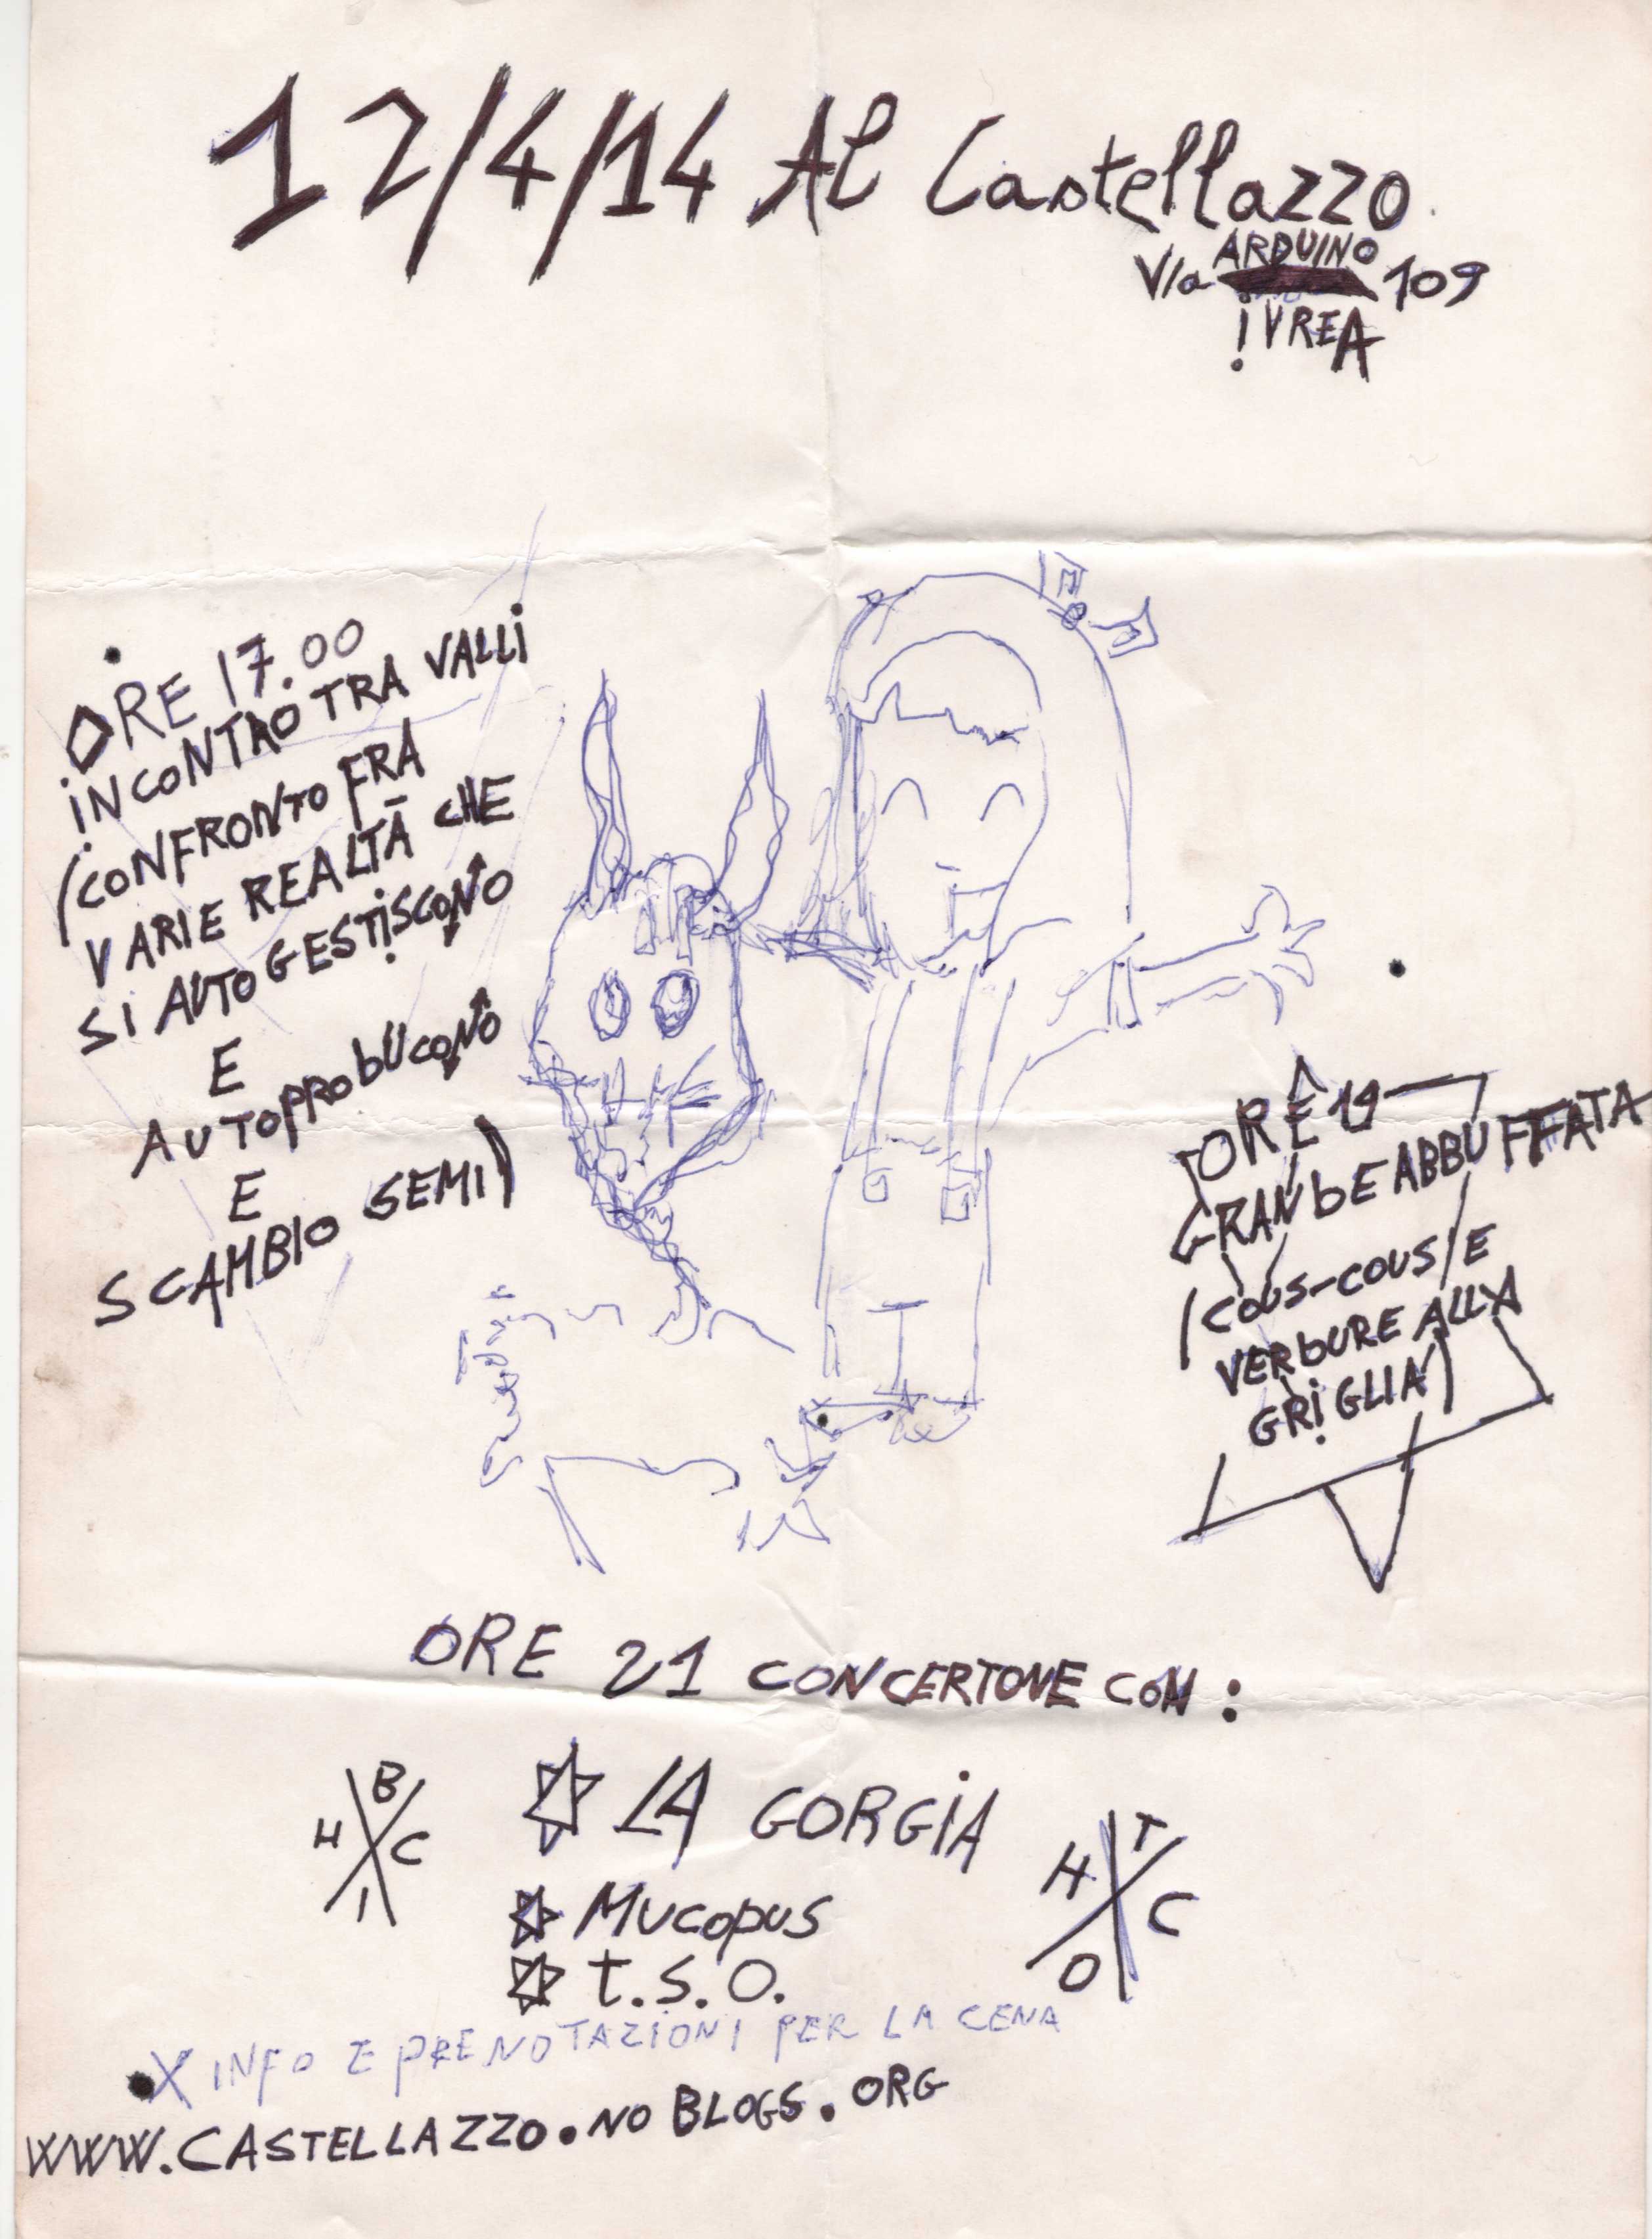 12/4/14 Al Castellazzo
Via ARDUINO 109
iVREA
ORE 17.00
iNCONTRO TRA VALLi
(CONFRONTO FRA
VARIE REALTÀ CHE
SI AUTOGESTiSCONO
E
AUTOPPRODUCONO
E
SCAMBIO SEMI)
ORE 19
GRANDE ABBUFFATA
(COUS-COUS E
VERDURE ALLA
GRiGLIA)
ORE 21 CONCERTONE CON:
LA GORGiA
MUCOPUS
T.S.O.
B
H C
I
T
H C
O
X INFO E PRENOTAZIONI PER LA CENA
WWW.CASTELLAZZO.NOBLOGS.ORG